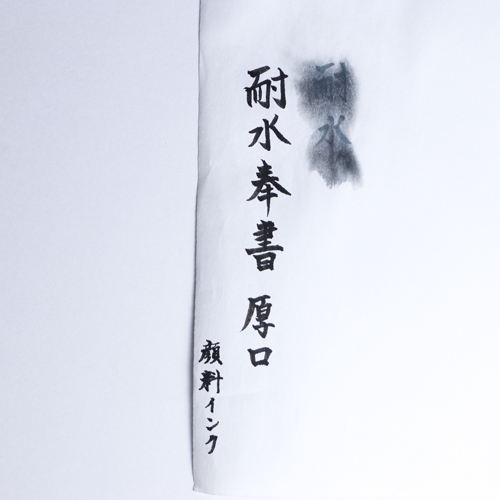 耐水
耐水奉書 厚口
顔料インク